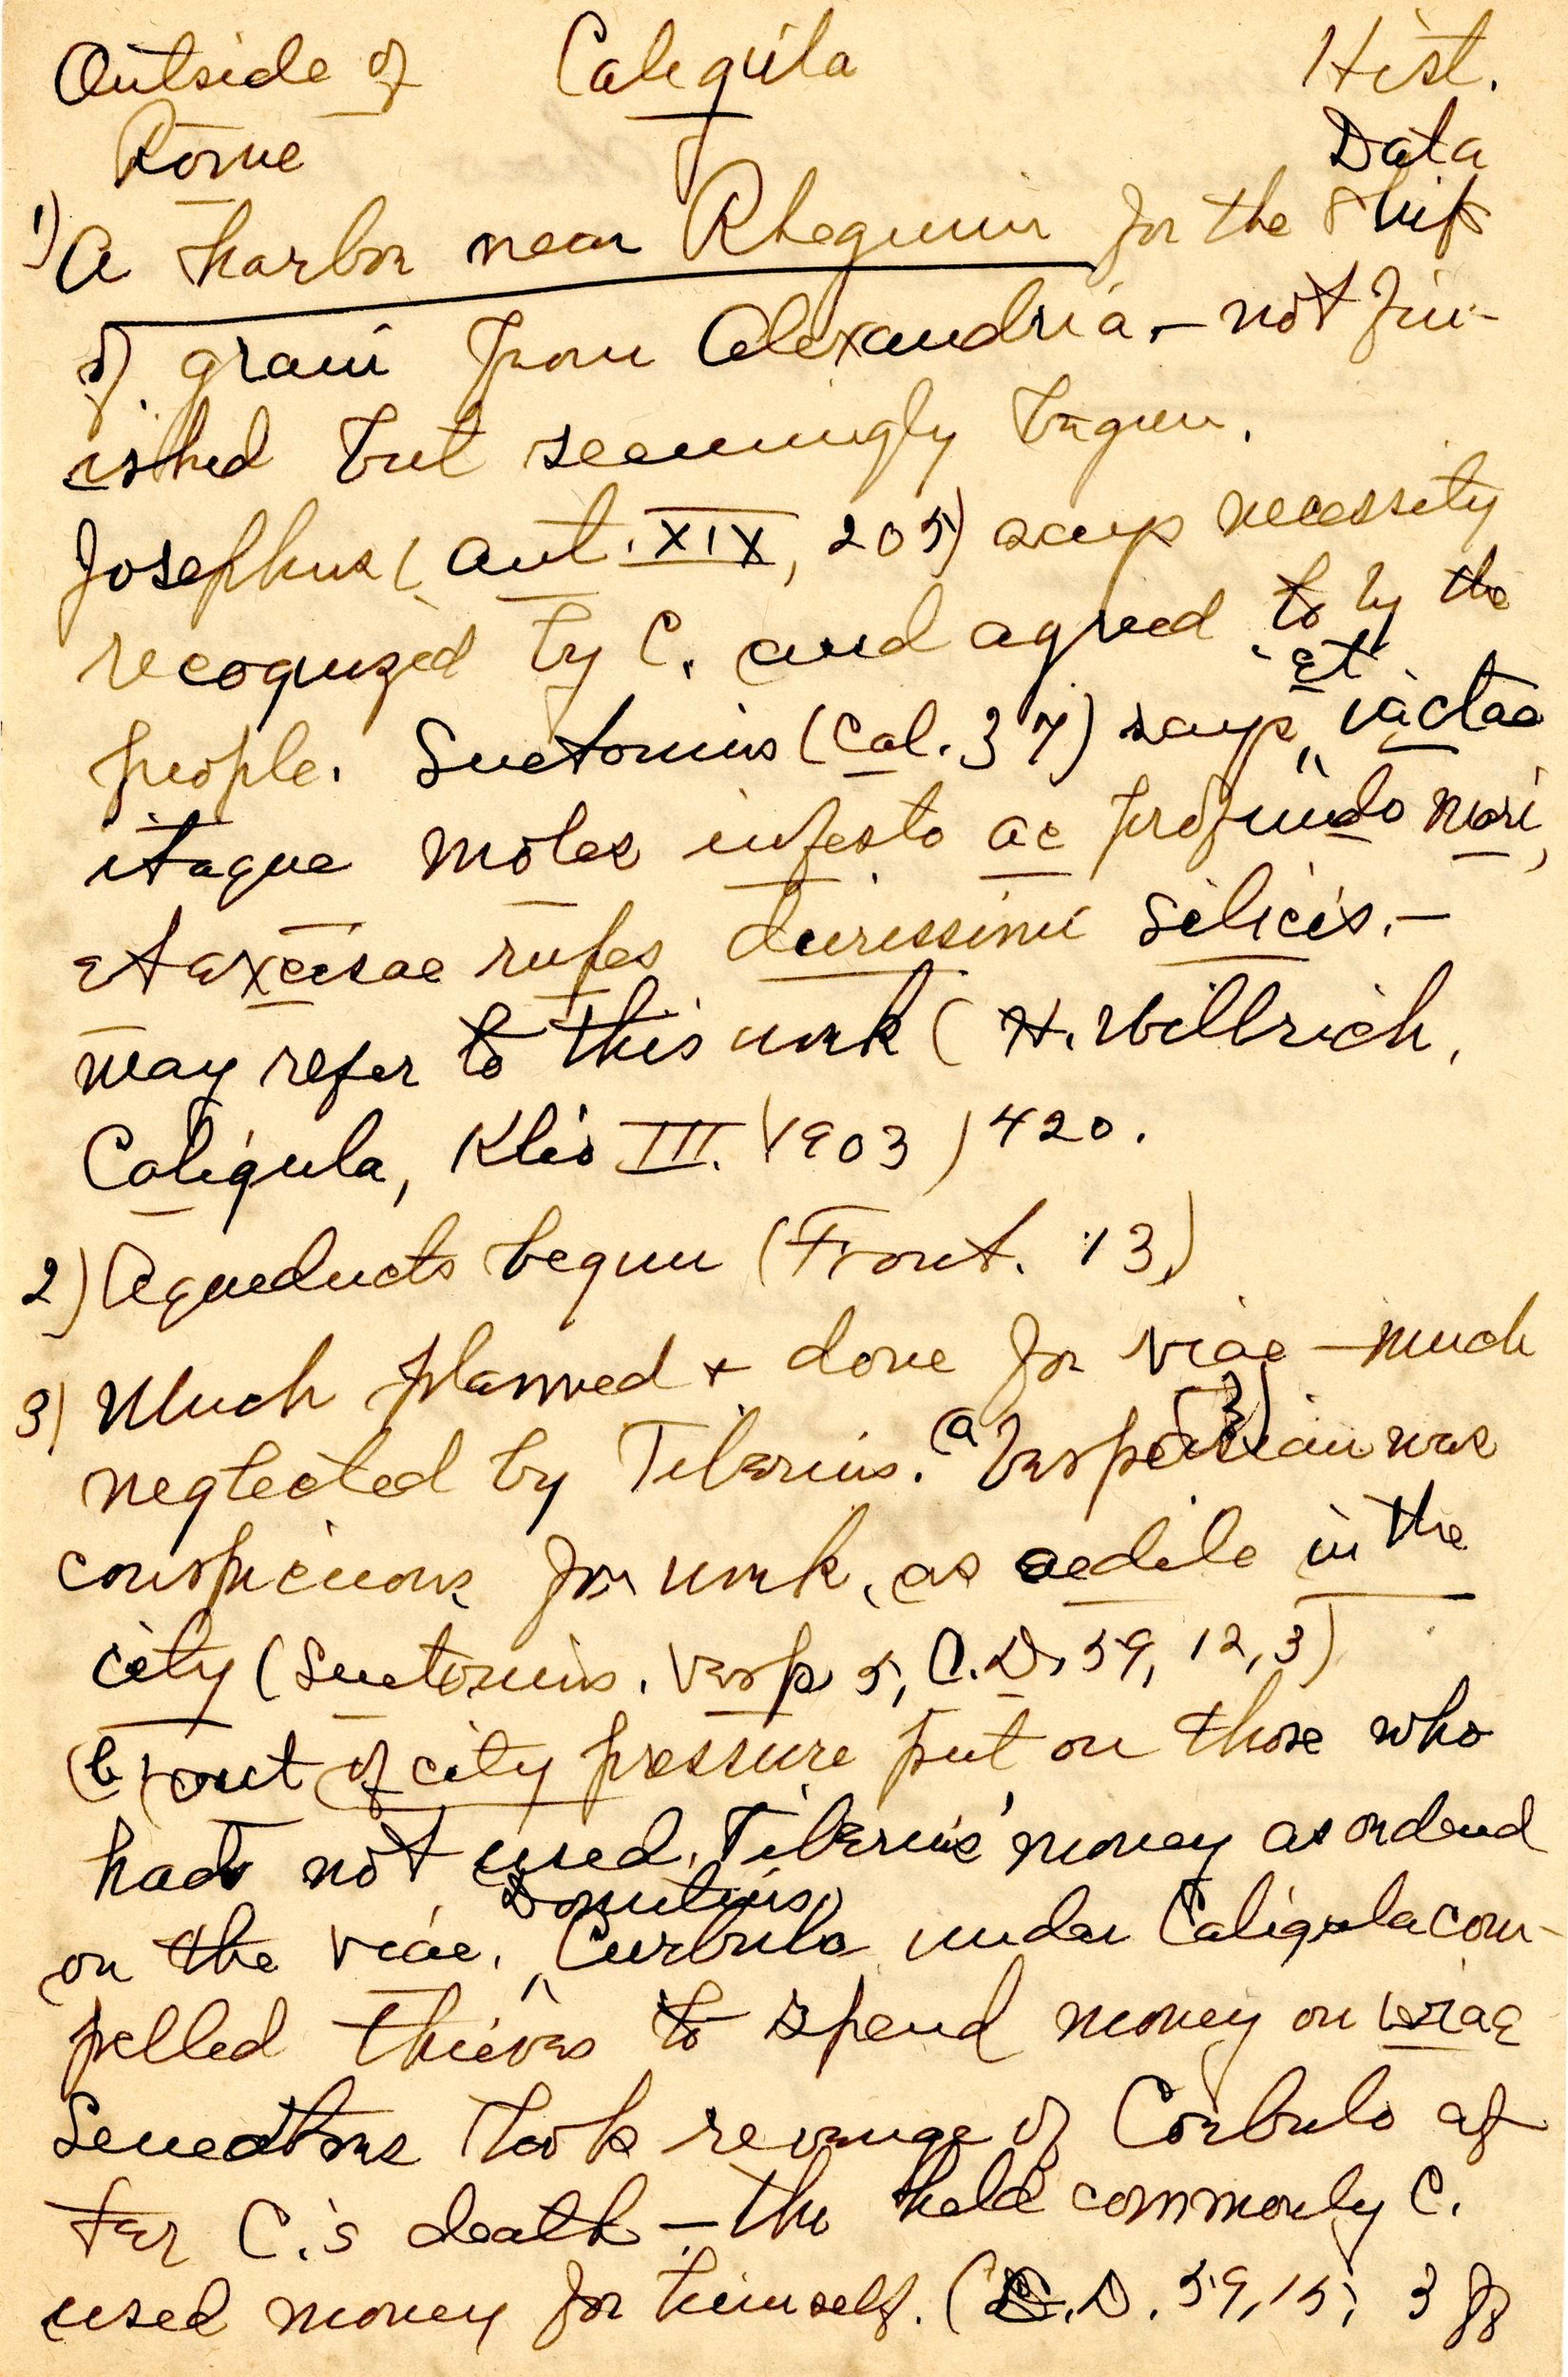 Outside of Caligula Hist.
Rome Data
1) A harbor near Rhegium for the ships
of grain from Alexandria, - not fin-
ished but seemingly begun.
Josephus (Ant. XIX, 205) says necessity
recognized by C. and agreed to by the
people. Suetonius (Cal. 37) says, "et iactae
itaque moles infesto ac profundo mari,
et excisae rupes durissimi silicis. -
may refer to this work (H. Willrich,
Caligula, Klio III. (1903) 420.
2) Aqueducts begun (Front. 13)
3) Much planned + done for viae - much
neglected by Tiberius. (a) Vespasian was
conspicuous for work, as aedile in the
city (Suetonius. Vesp 5, C.D. 59, 12, 3)
(b) out of city pressure put on those who
had not used Tiberius' money as ordered
on the viae. Domitius Curbulo under Caligula com-
pelled thieves to spend money on viae
Senators took revenge of Corbulo af
ter C.'s death - tho held commonly C.
used money for himself. (C.D. 59, 15, 3 ff